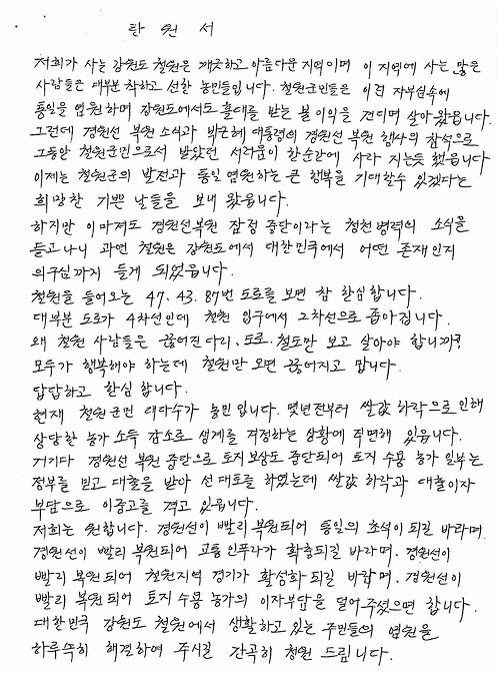 탄 원 서
저희가 사는 강원도 철원은 깨끗하고 아름다운 지역이며 이 지역에 사는 많은
사람들은 대부분 착하고 선한 농민들입니다. 철원군민들은 이런 자부심속에
통일을 염원하며 강원도에서도 홀대를 받는 불이익을 견디며 살아왔읍니다.
그런데 경원선 복원 소식과 박근혜 대통령의 경원선 복원 행사의 참석으로
그동안 철원군민으로서 받았던 서러움이 한순간에 사라 지는듯 했읍니다
이제는 철원군의 발전과 통일 염원하는 큰 행복을 기대할수 있겠다는
희망찬 기쁜 날들을 보내 왔읍니다.
하지만 이마저도 경원선복원 잠정 중단이라는 청천병력의 소식을
듣고나니 과연 철원은 강원도에서 대한민국에서 어떤 존재인지
의구심까지 들게 되었읍니다.
철원을 들어오는 47. 43. 87번 도로를 보면 참 한심합니다.
대부분 도로가 4차선인데 철원 입구에서 2차선으로 좁아집니다.
왜 철원 사람들은 끊어진다리. 도로. 철도만 보고 살아야 합니까?
모두가 행복해야 하는데 철원만 오면 끊어지고 맙니다.
답답하고 한심 합니다.
현재 철원군민 대다수가 농민 입니다. 몇년전부터 쌀값 하락으로 인해
상당한 농가 소득 감소로 생계를 걱정하는 상황에 직면해 있읍니다.
거기다 경원선 복원 중단으로 토지보상도 중단되어 토지 수용 농가 일부는
정부를 믿고 대출을 받아 선 대토를 하였는데 쌀값 하락과 대출이자
부담으로 이중고를 겪고 있읍니다.
저희는 원합니다. 경원선이 빨리 복원되어 통일의 초석이 되길 바라며.
경원선이 빨리 복원되어 교통 인푸라가 확충되길 바라며. 경원선이
빨리 복원되어 철원지역 경기가 활성화 되길 바람며. 경원선이
빨리 복원되어 토지 수용 농가의 이자부담을 덜어주셨으면 합니다.
대한민국 강원도 철원에서 생활하고 있는 주민들의 염원을
하루속히 해결하여 주시길 간곡히 청원 드립니다.